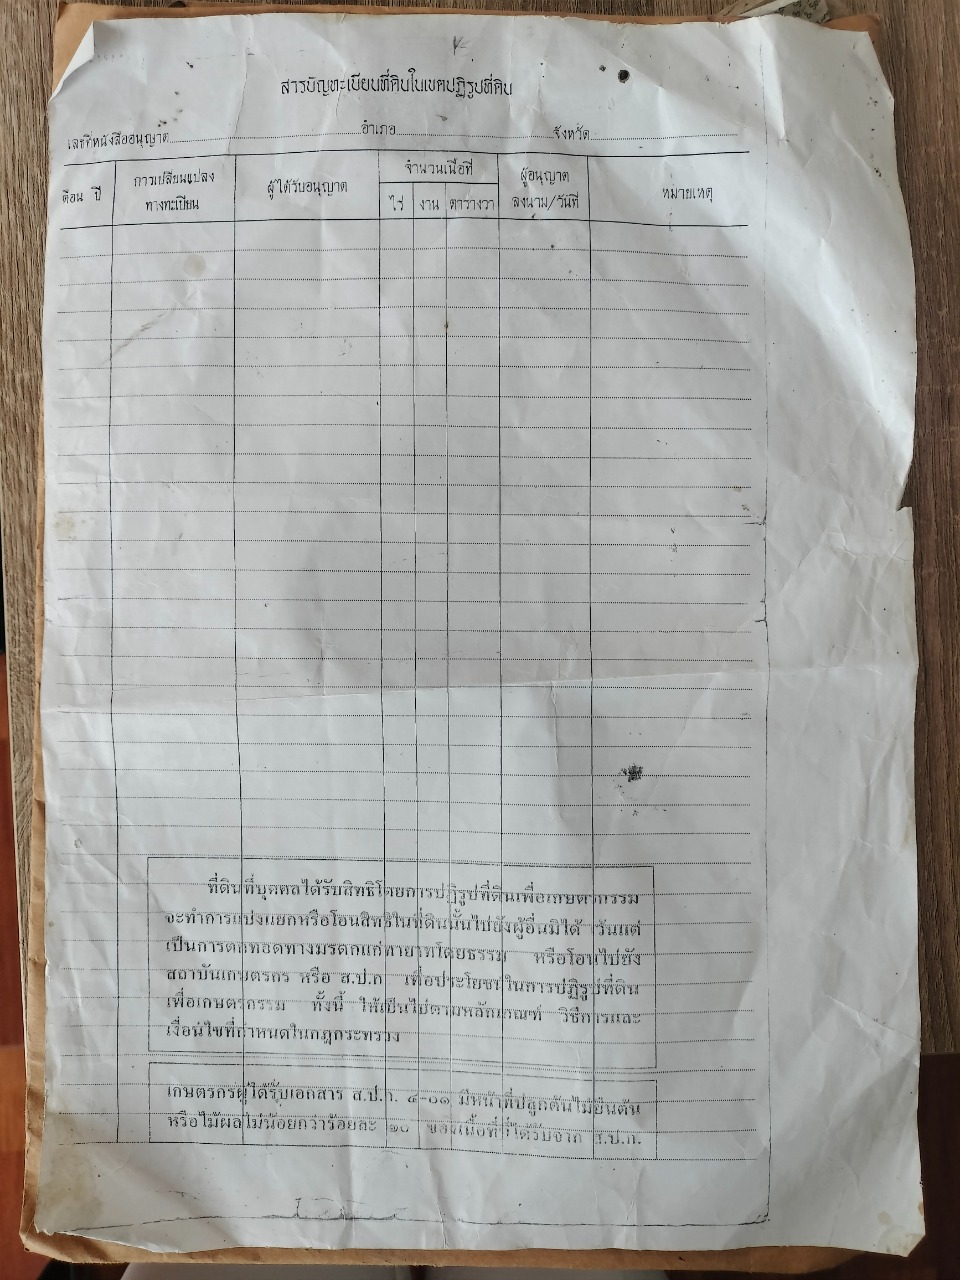 สารบัญทะเบียนที่ดินในเขตปฏิรูปที่ดิน
เลขที่หนังสืออนุญาต อำเภอ จังหวัด
เดือน ปี การเปลี่ยนแปลงทางทะเบียน ผู้ได้รับอนุญาต จำนวนเนื้อที่ ผู้อนุญาต ลงนาม/วันที่ หมายเหตุ
ไร่ งาน ตารางวา
ที่ดินที่บุคคลได้รับสิทธิโดยการปฏิรูปที่ดินเพื่อเกษตรกรรม
จะทำการแบ่งแยกหรือโอนสิทธิในที่ดินนั้นไปยังผู้อื่นมิได้ เว้นแต่
เป็นการตกทอดทางมรดกแก่ทายาทโดยธรรม หรือโอนไปยัง
สถาบันเกษตรกร หรือ ส.ป.ก. เพื่อประโยชน์ในการปฏิรูปที่ดิน
เพื่อเกษตรกรรม ทั้งนี้ ให้เป็นไปตามหลักเกณฑ์ วิธีการและ
เงื่อนไขที่กำหนดในกฎกระทรวง
เกษตรกรผู้ได้รับเอกสาร ส.ป.ก. ๔-๐๑ มีหน้าที่ปลูกต้นไม้ยืนต้น
หรือไม้ผลไม่น้อยกว่าร้อยละ ๒๐ ของเนื้อที่ที่ได้รับจาก ส.ป.ก.